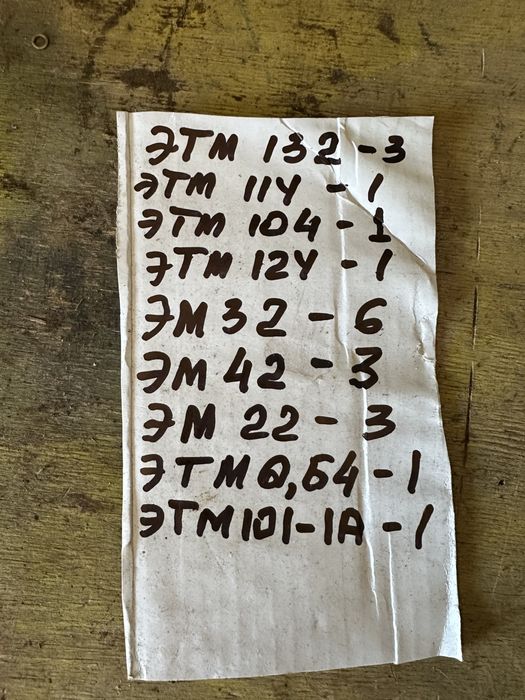 ЭТМ 132 - 3
ЭТМ 114 - 1
ЭТМ 104 - 1
ЭТМ 124 - 1
ЭМ 32 - 6
ЭМ 42 - 3
ЭМ 22 - 3
ЭТМ 0,64 - 1
ЭТМ 101-1А - 1